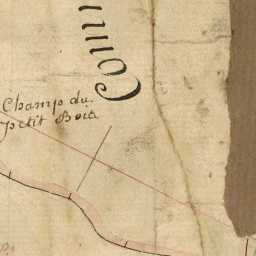 Champ du
petit Bois
Comm